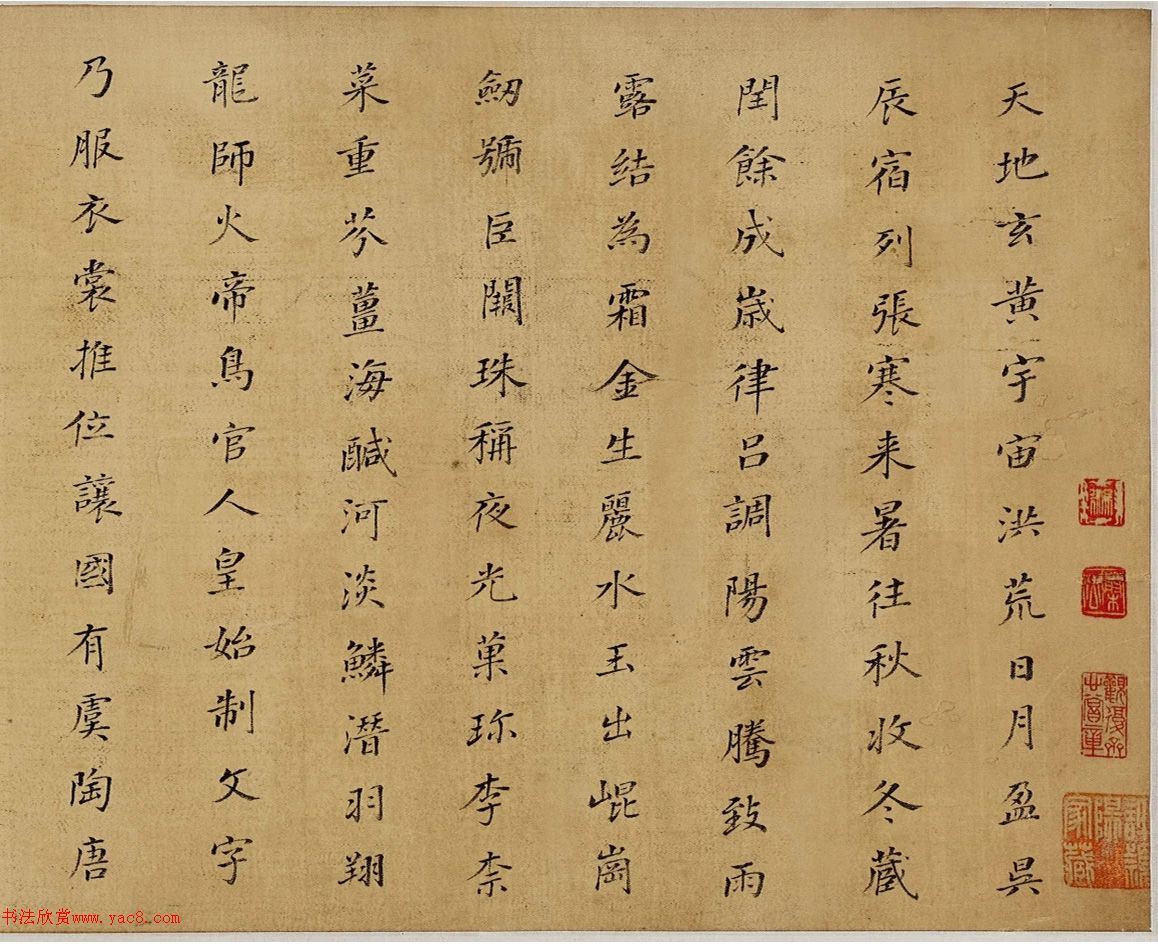 天地玄黄宇宙洪荒日月盈昃
辰宿列張寒来暑往秋收冬蔵
閏餘成歳律吕調陽雲騰致雨
露結為霜金生麗水玉出崐崗
劒號臣闕珠稱夜光菓珎李柰
菜重芥薑海醎河淡鱗潛羽翔
龍師火帝鳥官人皇始制文字
乃服衣裳推位讓國有虞陶唐
书法欣赏www.yac8.com